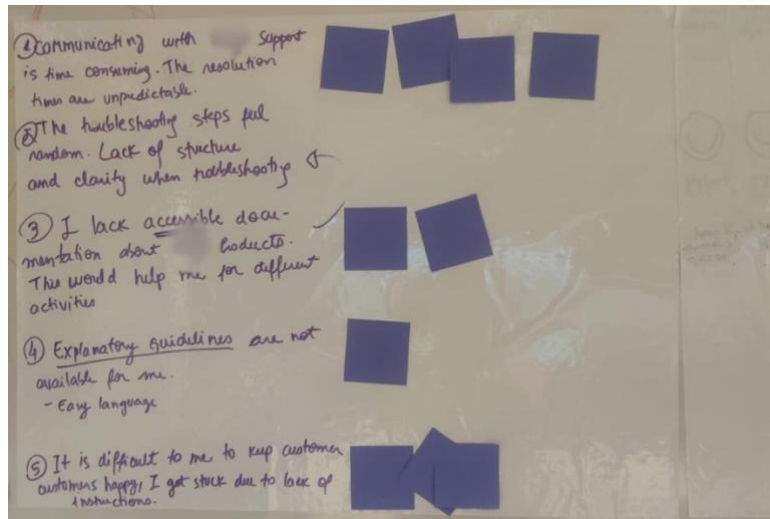 ① Communicating with Support
is time consuming. The resolution
times are unpredictable.
② The troubleshooting steps feel
random. Lack of structure
and clarity when troubleshooting
③ I lack accessible docu-
mentation about Products.
This would help me for different
activities
④ Explanatory guidelines are not
available for me.
- Easy language
⑤ It is difficult to me to keep customer
customers happy, I get stuck due to lack of
instructions.